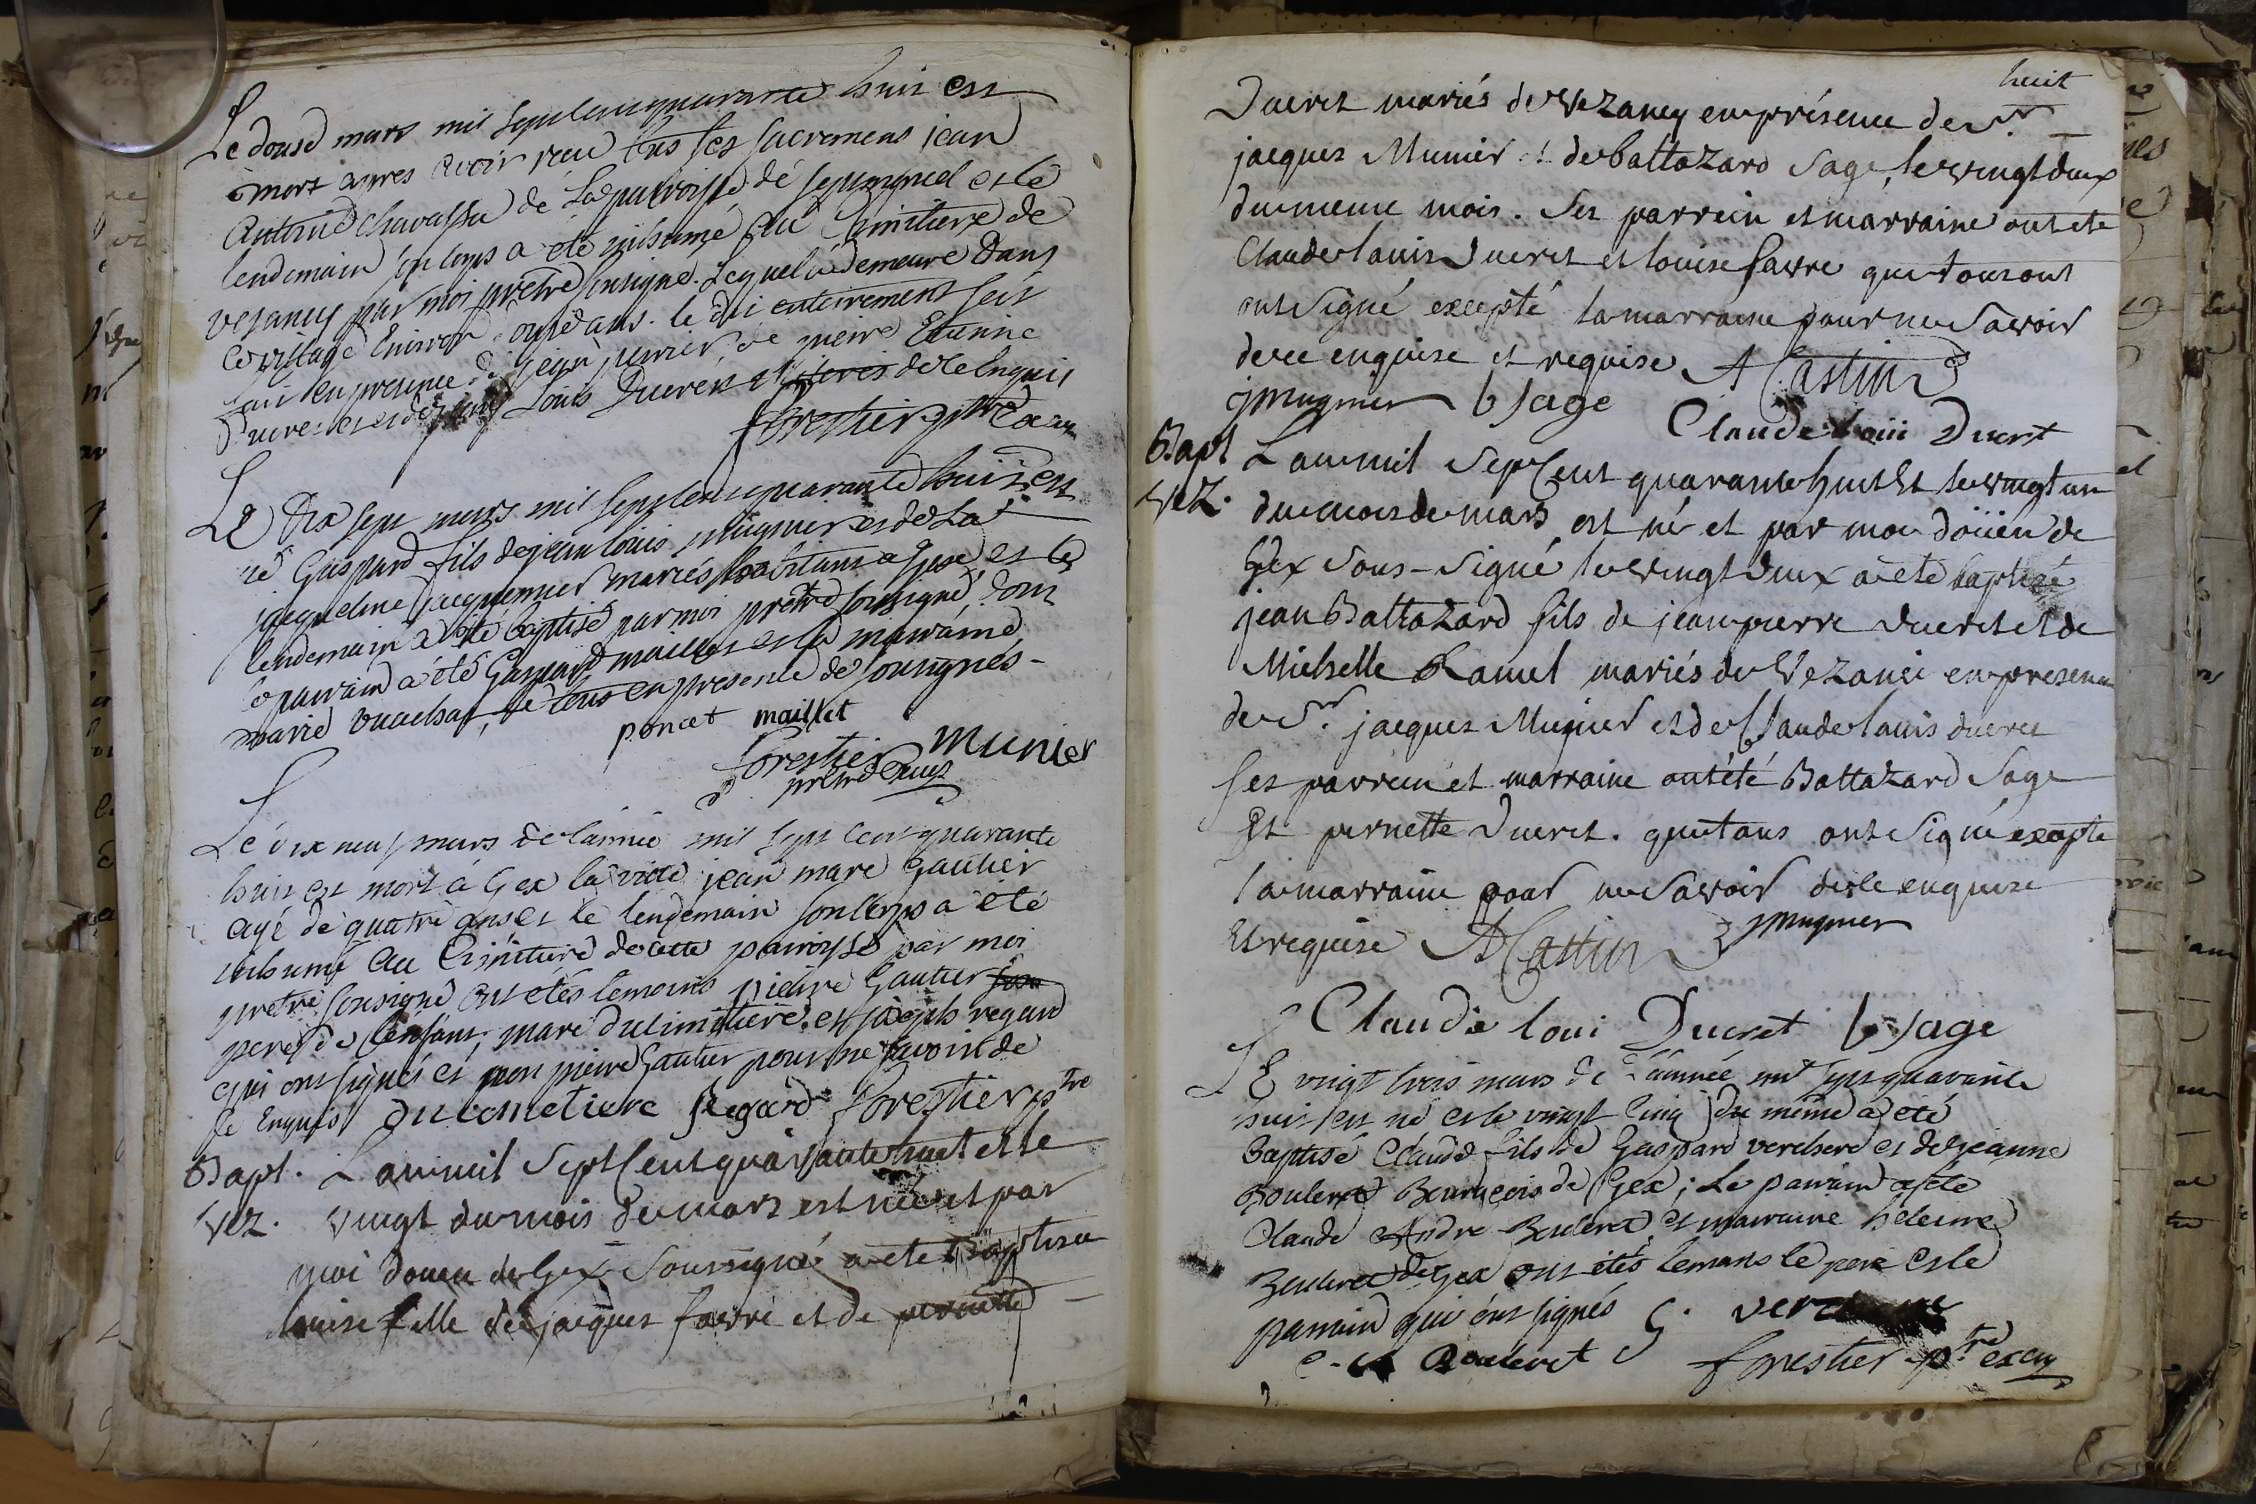 Le douse mars mil sept cent quarante huit est
mort apres avoir reçu tous ses sacremens jean
Antoine Chavassu de la parroisse de et le
lendemain son corps a été inhumé au Cimitiere de
vesancy par moi prêtre sousigné. Lequel à demeure Dans
ce village Environ onse ans. le dit enterrement fait
fait en presence de jean perrier, de pierre Etienne
Ducret et de Louis Ducret de ce Enquis
forestier ptre
Le Dix sept mars mil sept cent quarante huit est
né Guspard fils de jean louis mugnier et de La
jaqueline jacquemier mariés habitans a Gex et le
lendemain a été baptisé par moi prêtre sousigné, dont
le parrain a été Gaspard maillet et la marraine
marie vuachat, le tous en presence de sousignés -
poncet maillet
forestier munier
prêtre
Le dix neuf mars de l'année mil sept cent quarante
huit est mort à Gex la ville jean marc Gautier
agé de quatre ans et le lendemain son corps a été
inhumé au Cimitiere de cette parroisse par moi
prêtre sousigné ont étés temoins pierre Gautier
pere de l'enfant, marc ducimitiere, et joseph regard
qui ont signés et non pierre Gautier pour ne savoir de
ce Enquis ducimetiere Regard forestier ptre
Bapt. L'an mil Sept Cent quarante huit et le
Vez. vingt du mois de mars est née et par
moi doüen de Gex Soussigné a été Baptisée
louise fille de jacques favre et de pernette
huit
Ducret mariés de Vezancy en présence de Sr.
jacques Munier et de baltazard Sage, le vingt deux
du meme mois. Ses parrein et marraine ont été
Claude louis Ducret et louise favre que tous ont
ont Signé excepté la marraine pour ne Savoir
de ce enquise et requise A Castin
jmugnier b sage
Claude loui Ducret
Bapt L'an mil Sept Cent quarante huit Et le vingt un
Vez. du mois de mars est né et par moi doüen de
Gex Sous-signé le vingt deux a été baptizé
jean Baltazard fils de jean pierre ducret et de
Michelle Ramel mariés de Vezanci en presence
de Sr. jacques Mugnier et de Claude louis ducret
Ses parrein et marraine ont été Baltazard Sage
Et pernette Ducret. que tous ont Signé excepte
la marraine pour ne Savoir de ce enquise
Et requise A Castin jmugnier
Claude loui Ducret b sage
LE vingt trois mars de l'année mil sept quarante
huit est né et le vingt Cinq du même a été
Baptisé Claude fils de Gaspard verchere et de jeanne
Bouleret Bourgeois de Gex; Le parrain a été
Claude Andre Bouleret et marraine heleine
Bouleret de Gex ont étés temoins le pere et le
parrain qui ont signés G. verchere
Bouleret forestier ptre